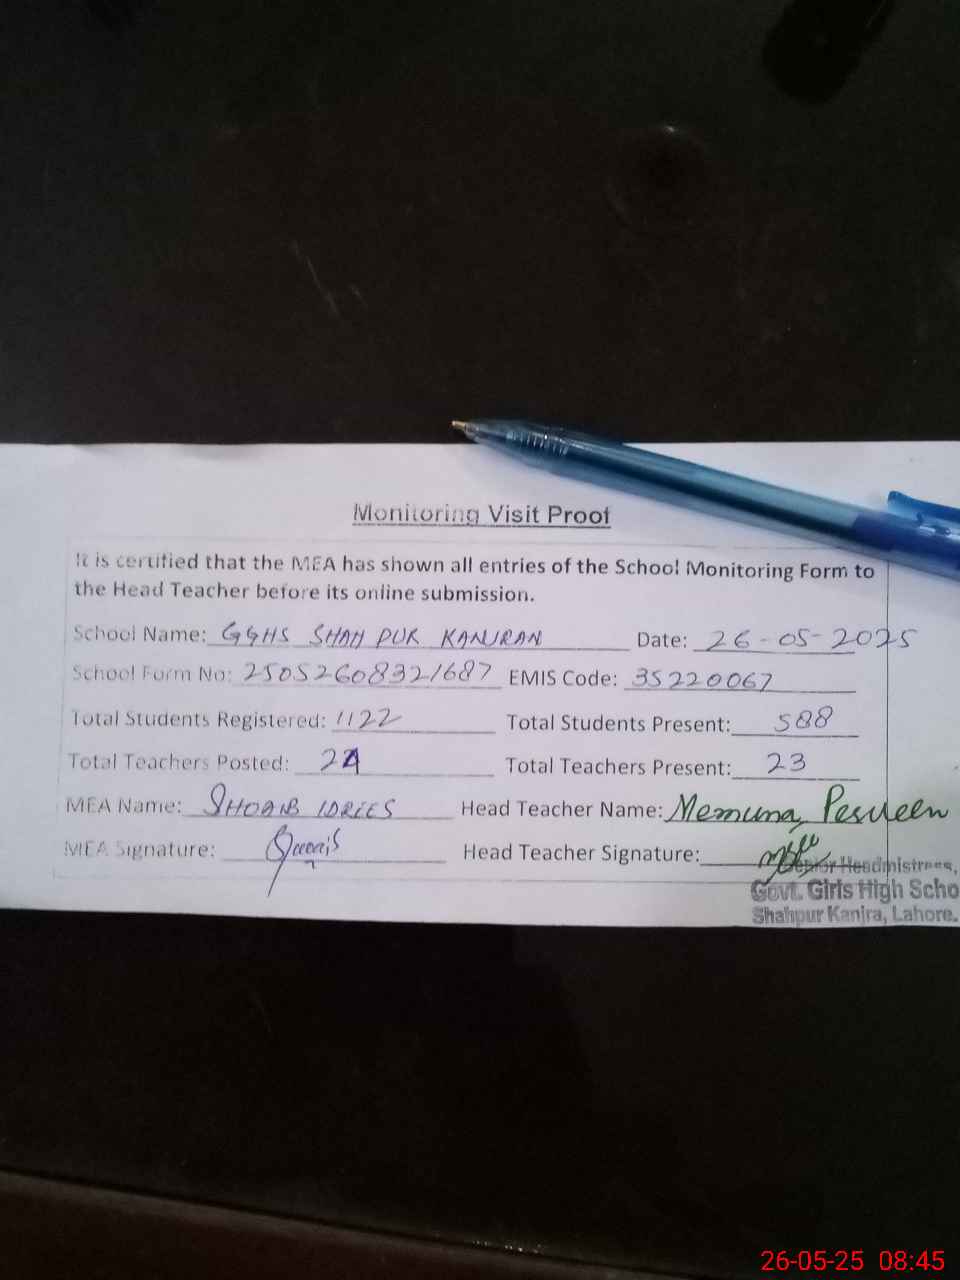 Monitoring Visit Proof
It is certified that the MEA has shown all entries of the School Monitoring Form to
the Head Teacher before its online submission.
School Name: GGHS SHAH PUR KANJRAN Date: 26-05-2025
School Form No: 25052608321687 EMIS Code: 35220067
Total Students Registered: 1122 Total Students Present: 588
Total Teachers Posted: 24 Total Teachers Present: 23
MEA Name: SHOAIB IDREES Head Teacher Name: Memuna Perveen
MEA Signature: Head Teacher Signature:
Senior Headmistress,
Govt. Girls High Scho
Shahpur Kanjra, Lahore.
26-05-25 08:45